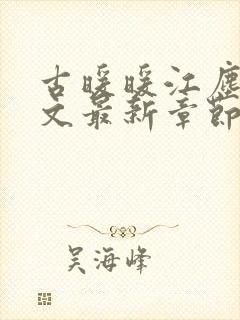 古暖暖江尘
文最新章节
吴海峰